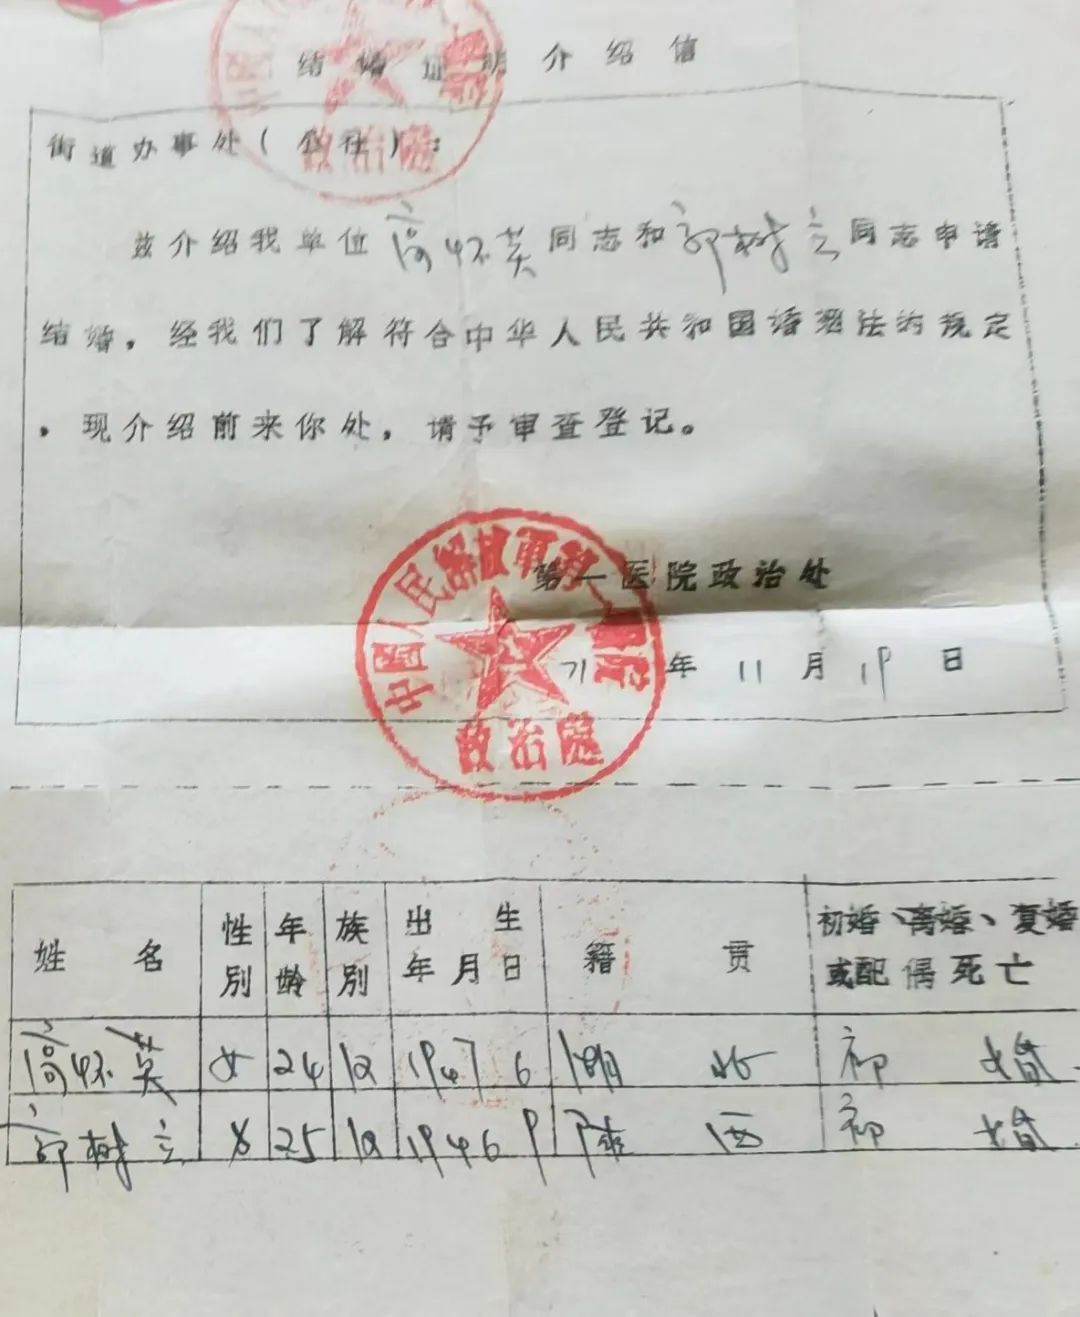 结婚证明介绍信
街道办事处(公社):
兹介绍我单位高怀英同志和郭树言同志申请
结婚,经我们了解符合中华人民共和国婚姻法的规定
。现介绍前来你处,请予审查登记。
中国人民解放军第一医院
政治处
第一医院政治处
71年11月19日
姓名 性别 年龄 族别 出生年月日 籍贯 初婚、离婚、复婚或配偶死亡
高怀英 女 24 汉 1947 6 湖北 初婚
郭树言 25 汉 1946 9 陕西 初婚